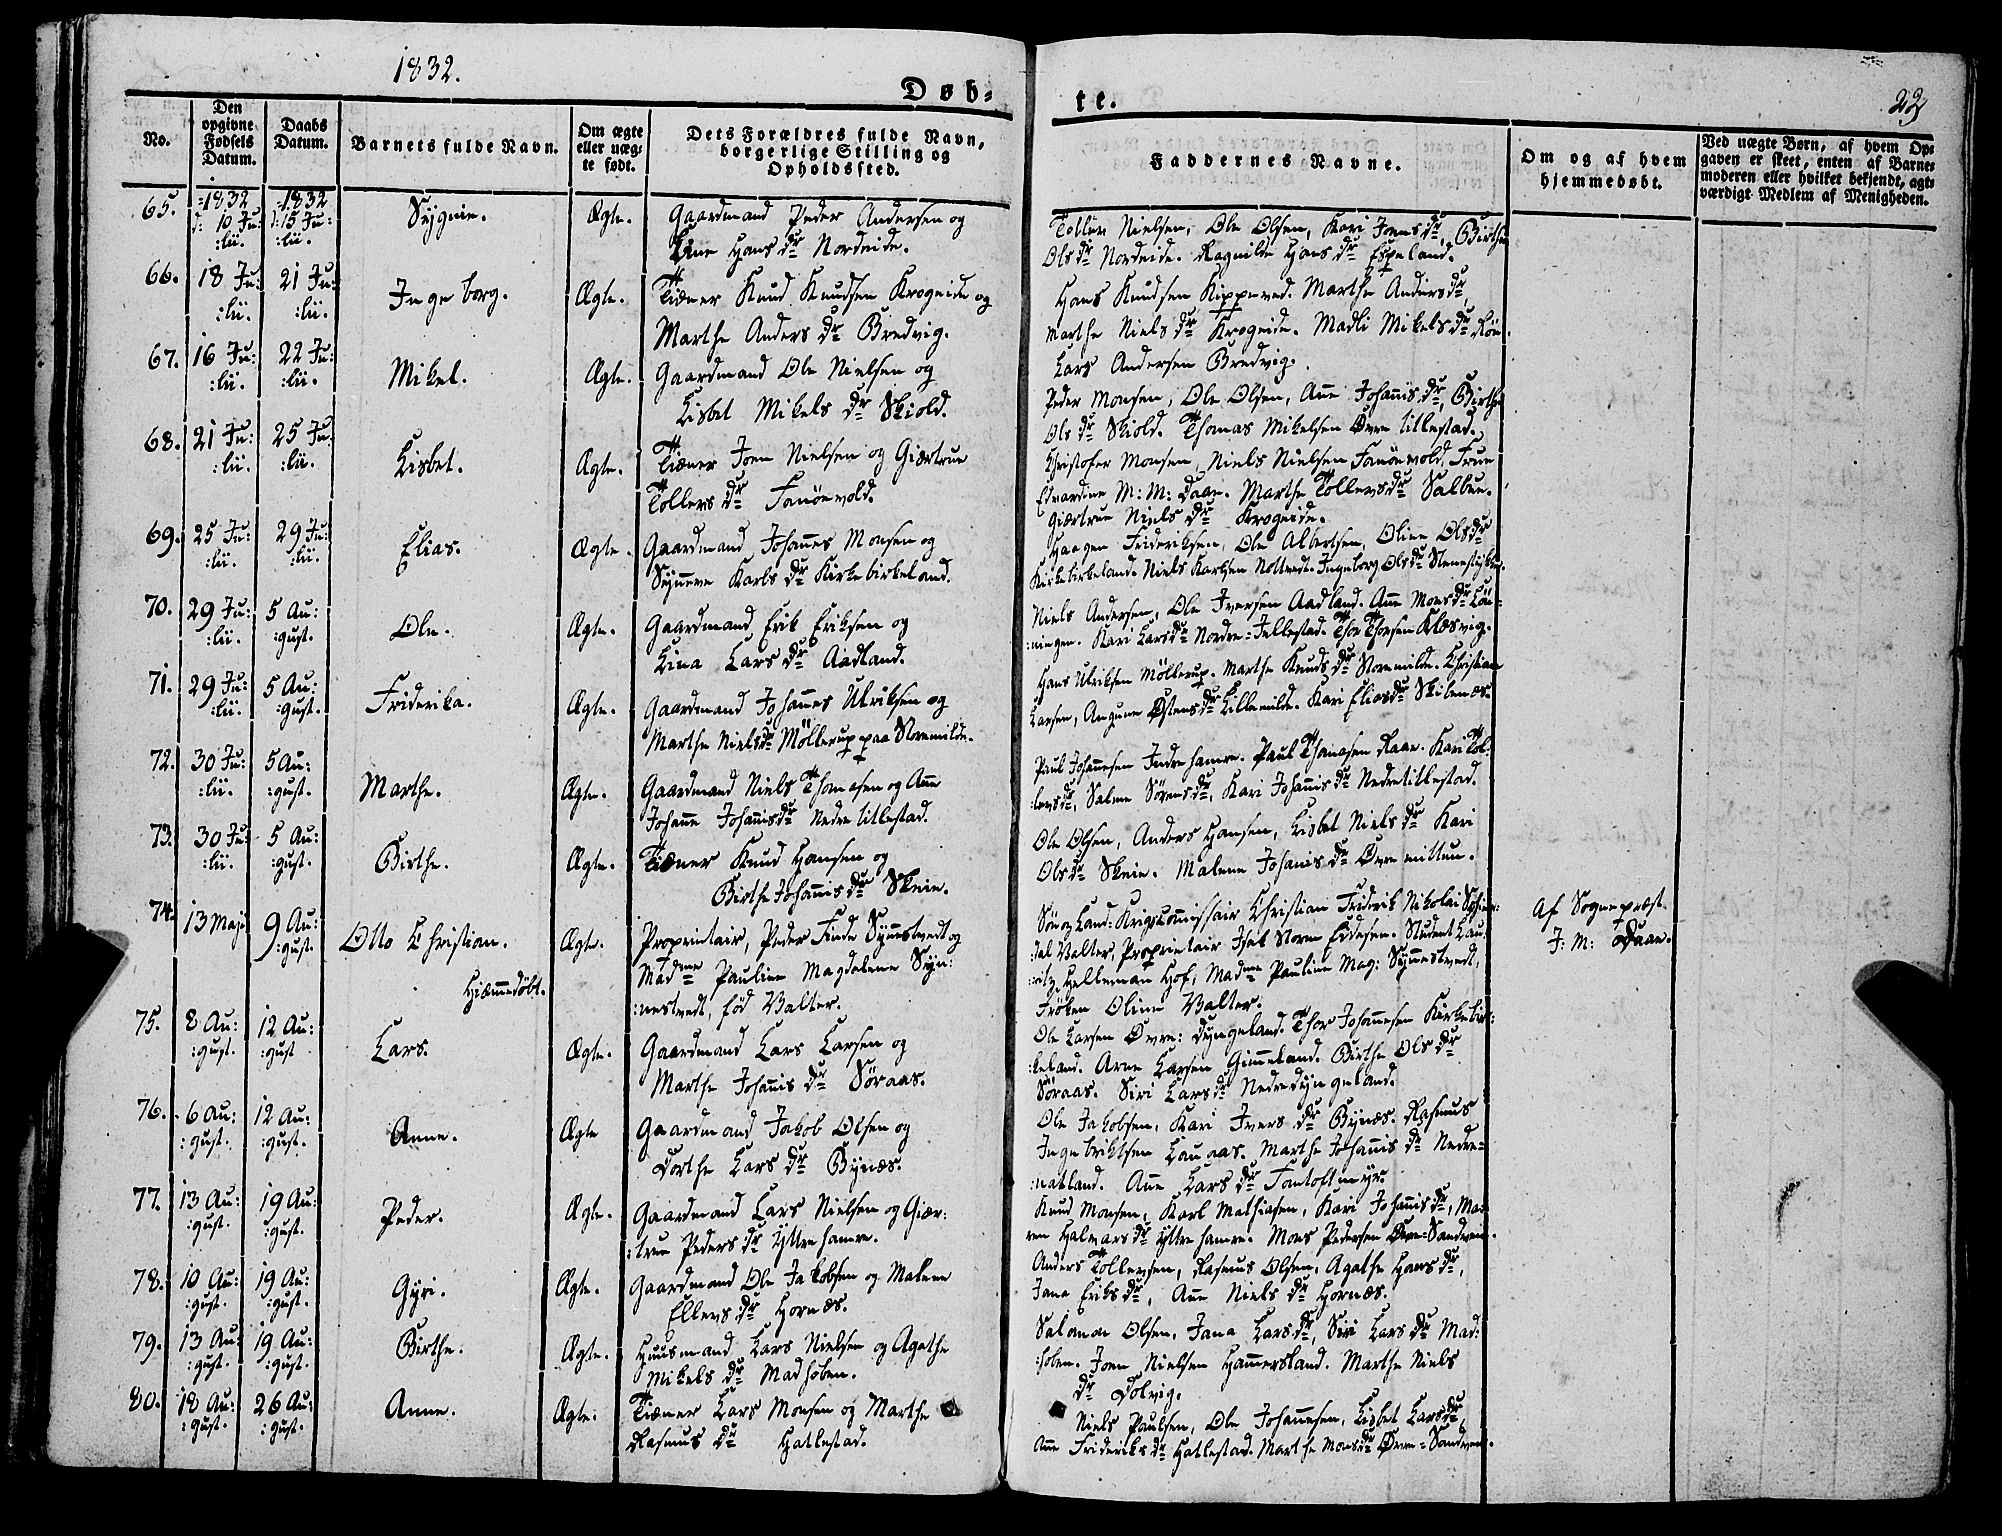 1832.
Døb-
te.
22
No.
Den
opgivne
Fødsels
Datum.
Daabs
Datum.
Barnets fulde Navn.
Om ægte
eller uæg-
te født.
Dets Forældres fulde Navn,
borgerlige Stilling og
Opholdssted.
Faddernes Navne.
Om og af hvem
hjemmedøbt.
Ved uægte Børn, af hvem Op-
gaven er skeet, enten af Barne-
moderen eller hvilket bekjendt, agt-
værdigt Medlem af Menigheden.
65. 1832 d: 10 Ju: :lii. 1832 d: 15 Ju: :lii. Sygnie. Ægte. Gaardmand Peder Andersen og
Hans dr Nordeide.
Toller Nielsen, Ole Olsen, Kari Joens dr, Birthe
Ols dr Nordeide. Ragnilde Hans dr Espeland.
66. 18 Ju: :lii. 21 Ju: :lii. Ingeborg. Ægte. Tiæner Knud Knudsen Krogeide og
Marthe Anders dr Bredvig.
Hans Knudsen Kippeved. Marthe Anders dr,
Marthe Niels dr Krogeide. Madli Mikels dr
Lars Andersen Bredvig.
67. 16 Ju: :lii. 22 Ju: :lii. Mikel. Ægte. Gaardmand Ole Nielsen og
Lisbet Mikels dr Skiold.
Peder Monsen, Ole Olsen, Ane Johanis dr, Birthe
Ols dr Skiold. Thomas Mikelsen Øvre titlestad.
68. 21 Ju: :lii. 25 Ju: :lii. Lisbet. Ægte. Tiæner Joen Nielsen og Giærtrue
Tollevs dr Fanöevold.
Christofer Monsen, Niels Nielsen Fanöevold, Frue
Edvardine M: M: Daae. Marthe Tollevs dr Salbue.
Giærtrue Niels dr Krogeide.
69. 25 Ju: :lii. 29 Ju: :lii. Elias. Ægte. Gaardmand Johannes Monsen og
Synneve Karls dr Kirkebirkeland.
Haagen Frideriksen, Ole Albertsen, Oline Ols dr
Kirkebirkeland. Niels Karlsen Nottvedt. Ingeborg Ols dr
70. 29 Ju: :lii. 5 Au: :gust. Ole. Ægte. Gaardmand Erik Eriksen og
Lina Lars dr Aadland.
Niels Andersen, Ole Iversen Aadland. Ane Mons dr Lön-
:ningen. Kari Lars dr Nordre-Jellestad. Thor Thorsen
71. 29 Ju: :lii. 5 Au: :gust. Friderika. Ægte. Gaardmand Johannes Ulriksen og
Marthe Niels dr Möllerup paa Storemilde.
Hans Ulriksen Möllerup. Marthe Knuds dr Storemilde. Christian
Larsen, Østens dr Lillemilde. Kari Elias dr Skilenæs.
72. 30 Ju: :lii. 5 Au: :gust. Marthe. Ægte. Gaardmand Niels Thomasen og Ane
Johanne Johanis dr Nedre titlestad.
Paul Johannesen Indrehamre. Paul Thomasen Raae. Kari Tol:
levs dr, Salmne Sörens dr, Kari Johanis dr Nedretitlestad.
73. 30 Ju: :lii. 5 Au: :gust. Birthe. Ægte. Tiæner Knud Hansen og
Birthe Johanis dr Skeie.
Ole Olsen, Anders Hansen, Lisbet Niels dr Kari
Ols dr Skeie. Malene Johanis dr Øvre mittun.
74. 13 Maji 9 Au: :gust. Otto Christian. Hiemmedöbt. Ægte. Proprietair, Peder Finde Synnestvedt og
Madme Pauline Magdalene Syn:
:nestvedt, fød Valter.
Søe og Land-Krigscomissair Christian Friderik Nikolai
Valter, Proprietair Isak Storm Eidesen. Student Lau:
:ritz Helleman Hof, Madme Pauline Mag: Synnestvedt,
Fröken Oline Valter.
Af Sognepræst
J: M: Daae.
75. 8 Au: :gust. 12 Au: :gust Lars. Ægte. Gaardmand Lars Larsen og
Marthe Johanis dr Søraas.
Ole Larsen Øvre: Dyngeland. Thor Johannesen Kirkebir:
:keland. Arne Larsen Gimmeland. Birthe Ols dr
Søraas. Siri Lars dr Nedredyngeland.
76. 6 Au: :gust. 12 Au: :gust. Anne. Ægte Gaardmand Jakob Olsen og
Dorthe Lars dr Bynæs.
Ole Jakobsen, Kari Ivers dr Bynæs. Rasmus
Ingebriktsen Lauaas. Marthe Johanis dr Nedre-
:natland. Ane Lars dr Fantoftmyr.
77. 13 Au: :gust. 19 Au: :gust. Peder. Ægte. Gaardmand Lars Nielsen og Giær:
:true Peders dr Yttrehamre.
Knud Monsen, Karl Mathiasen, Kari Johanis dr, Ma:
ren Halvars dr Yttrehamre. Mons Pedersen Øvre-Sandven.
78. 10 Au: :gust. 19 Au: :gust. Gyri. Ægte. Gaardmand Ole Jakobsen og Malene
Ellevs dr Hornæs.
Anders Tollevsen, Rasmus Olsen, Agathe Hans dr,
Jana Eriks dr, Ane Niels dr Hornæs.
79. 13 Au: :gust. 19 Au: :gust. Birthe. Ægte. Huusmand Lars Nielsen og Agathe
Mikels dr Madhølen.
Salamon Olsen, Jana Lars dr, Siri Lars dr Mad:
:hølen. Joen Nielsen Hammersland. Marthe Niels
dr Dolvig.
80. 18 Au: :gust. 26 Au: :gust. Anne. Ægte. Tiæner Lars Monsen og Marthe
Rasmus dr Hatlestad.
Niels Paulsen, Ole Johannesen, Lisbet Lars dr,
Ane Frideriks dr Hatlestad. Marthe Mons dr Øvre-Sandven.